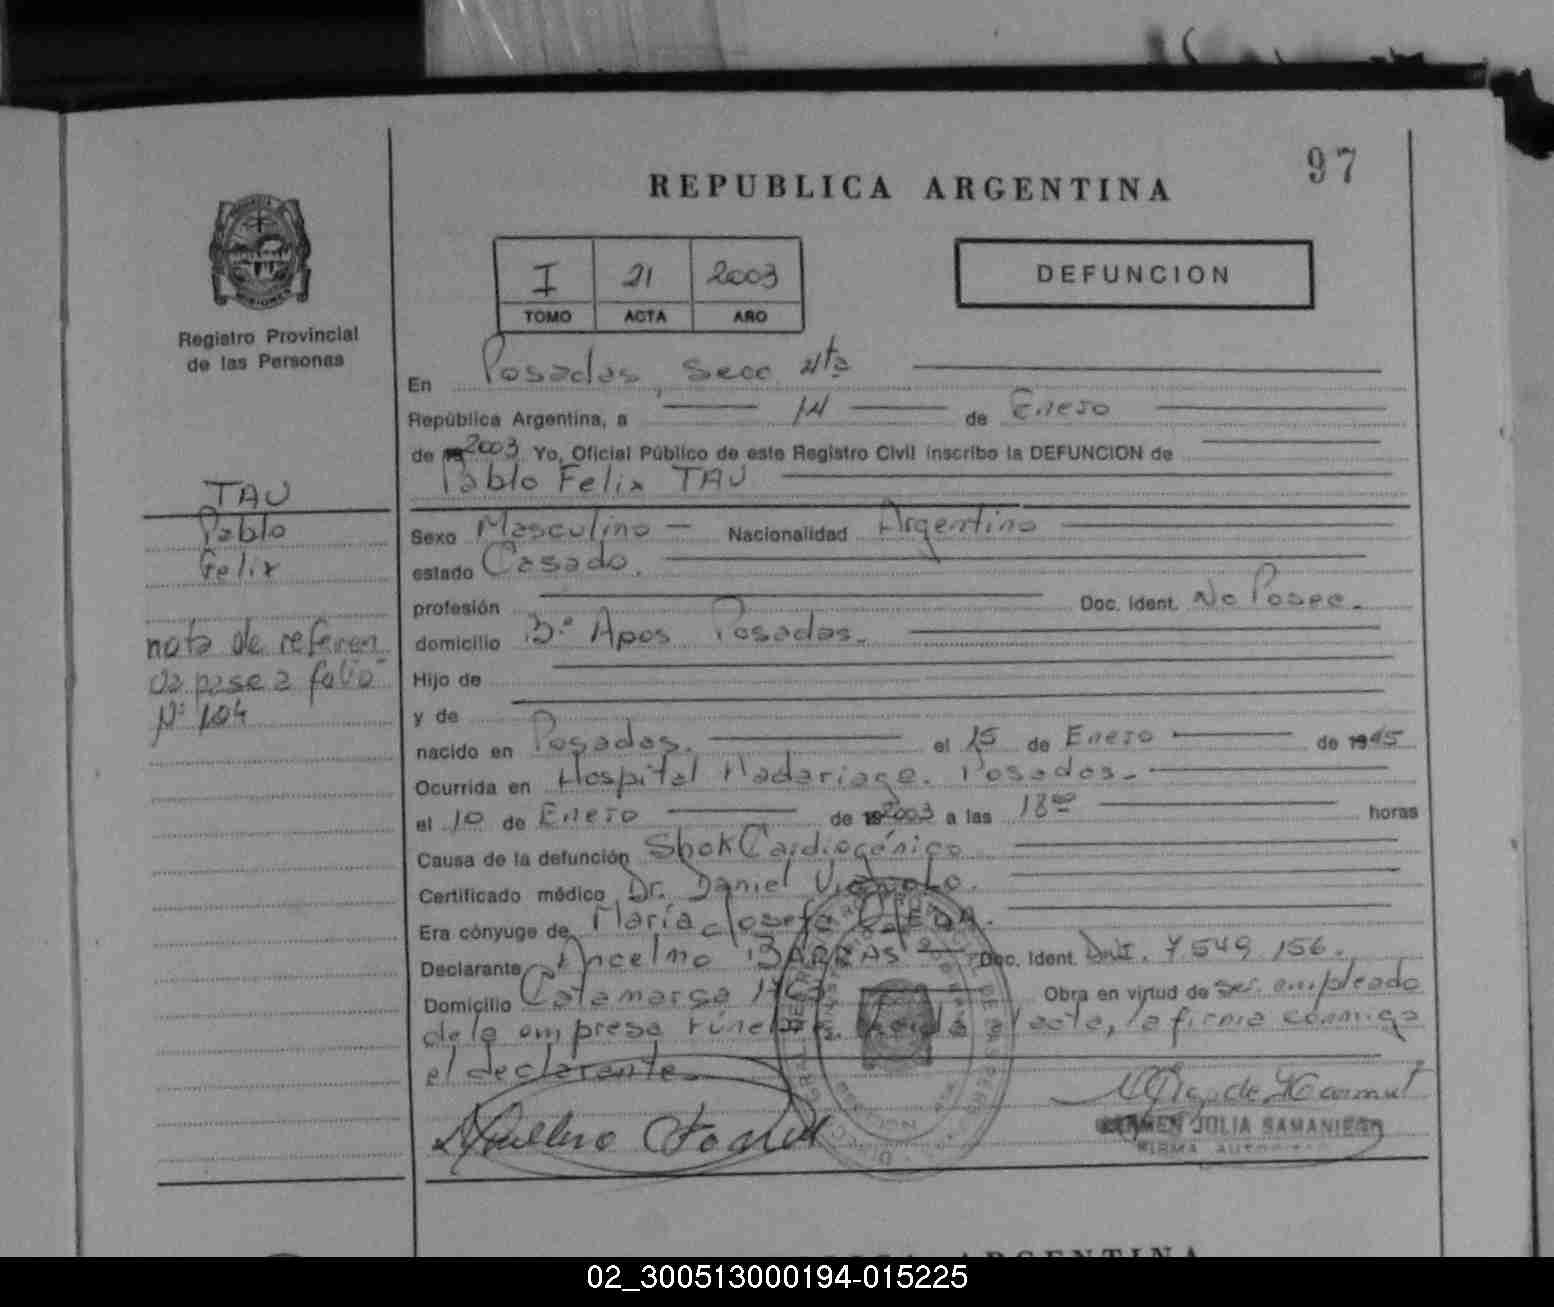 97
REPUBLICA ARGENTINA
I 21 2003
TOMO ACTA AÑO
DEFUNCION
Registro Provincial
de las Personas
En Posadas, Secc 4ta
República Argentina, a 14 de Enero
de 2003 Yo, Oficial Público de este Registro Civil inscribo la DEFUNCION de
Pablo Felix TAU
TAU
Pablo
Felix
nota de referen
cia pase a folio
Nº 104
Sexo Masculino - Nacionalidad Argentino
estado Casado.
profesión Doc. Ident. No Posee.
domicilio Bº Apos Posadas.
Hijo de
y de
nacido en Posadas. el 15 de Enero de 1945
Ocurrida en Hospital Madariaga. Posadas.
el 10 de Enero de 2003 a las 18 00 horas
Causa de la defunción Shok Cardiogénico
Certificado médico Dr. Daniel
Era cónyuge de María Josefa
Declarante Ancelmo BARRAS Doc. Ident. DNI. 7.549.156.
Domicilio Catamarca Obra en virtud de ser empleado
de la empresa Fúnebre. Leída el acta, la firma conmigo
el declarante.
CARMEN JULIA SAMANIEGO
FIRMA AUTORIZADA
ARGENTINA
02_300513000194-015225